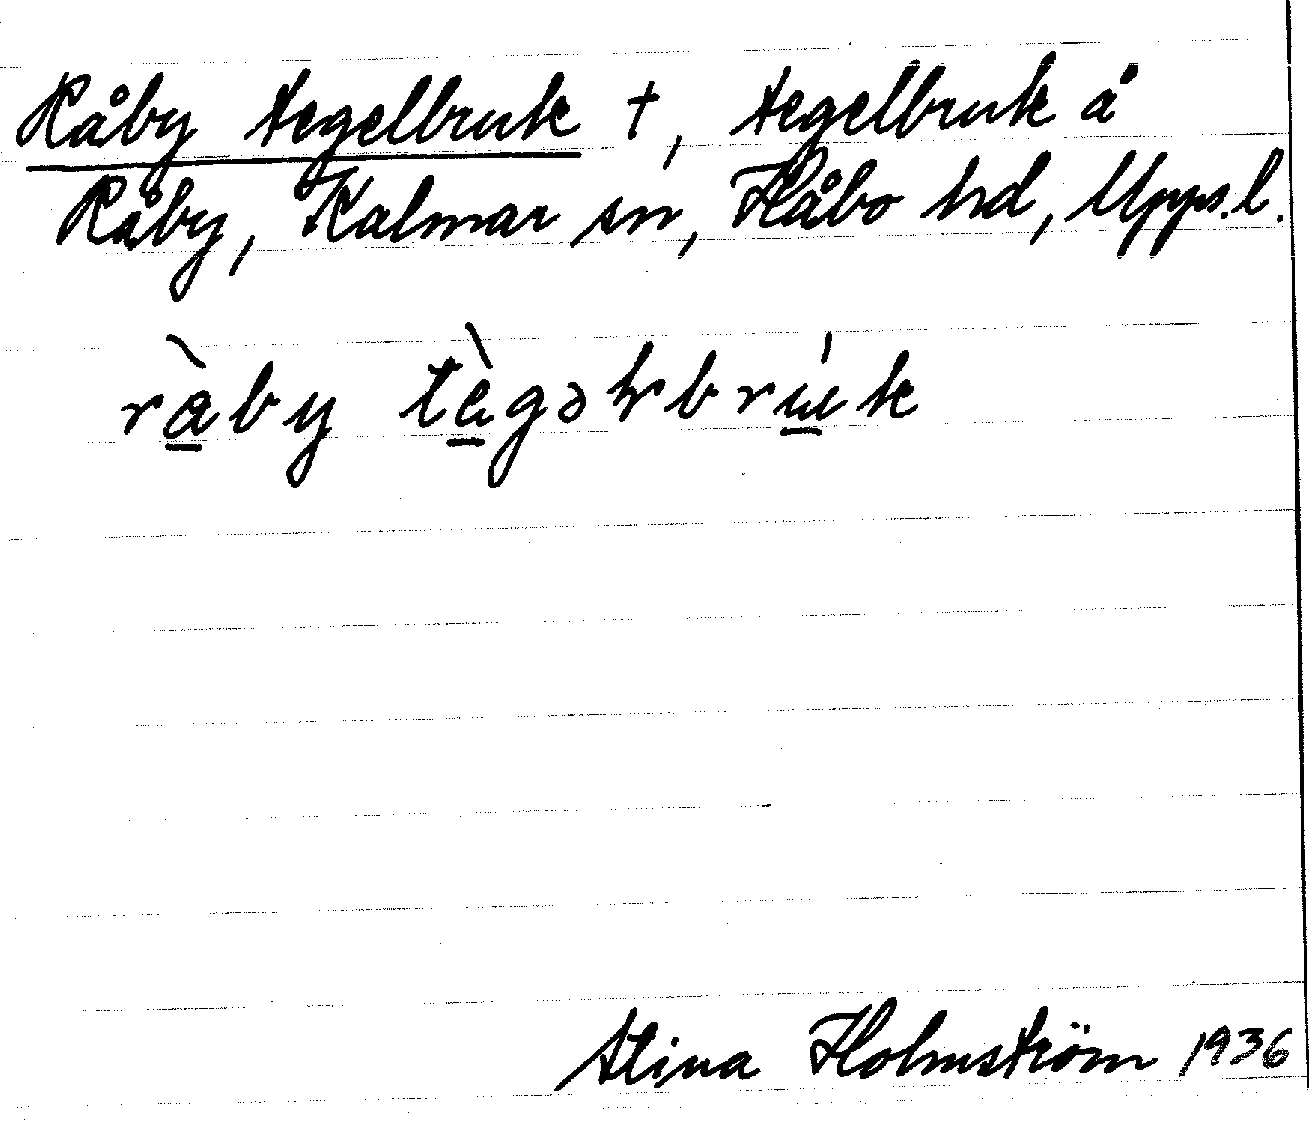 Råby tegelbruk †, tegelbruk å
Råby, Kalmar sn, Håbo hd, Upps.l.
ràby tègəlbrúk
Stina Holmström 1936